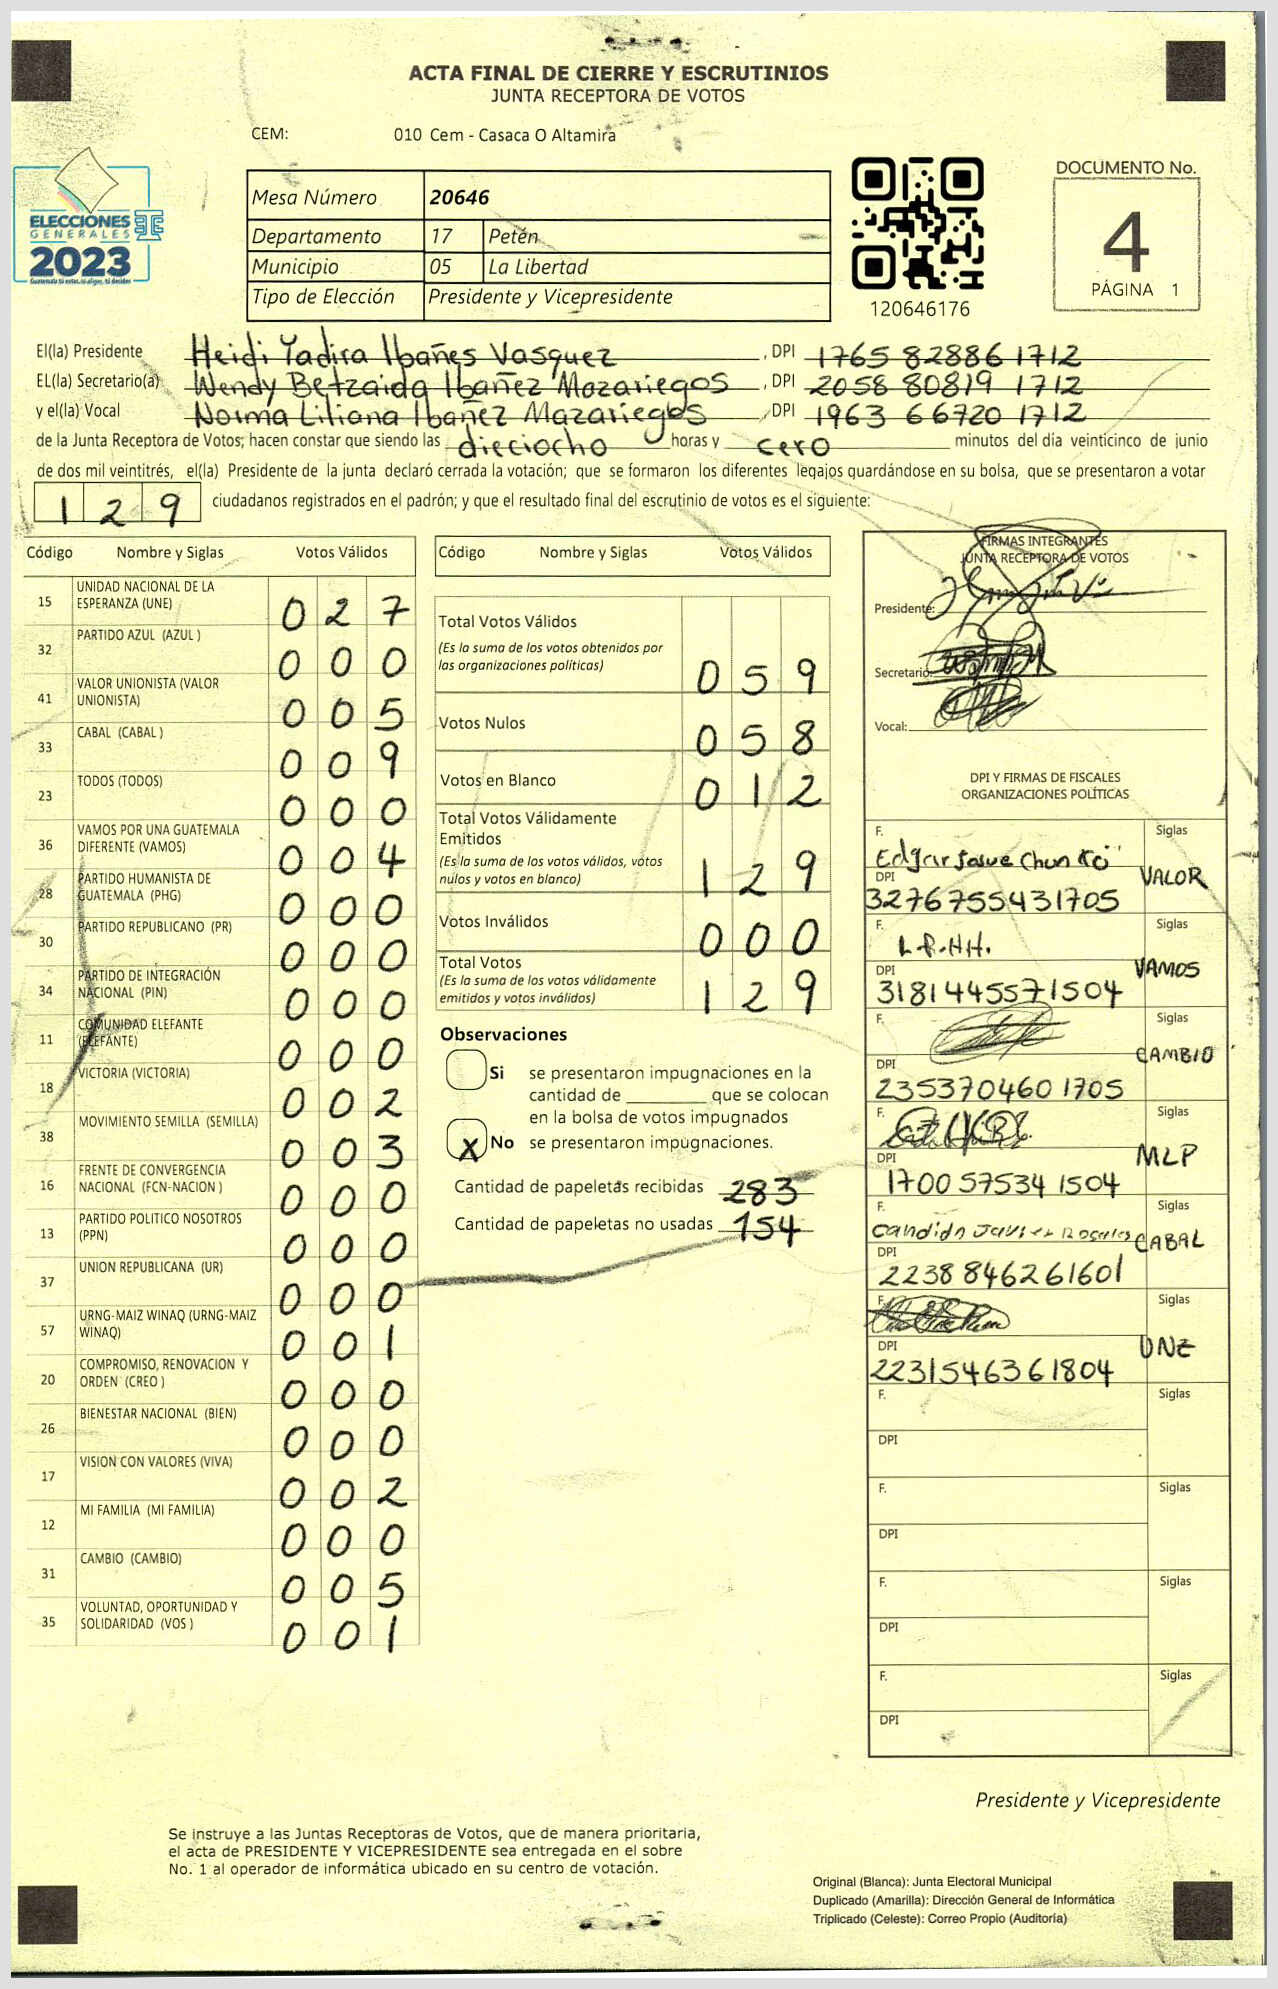 ACTA FINAL DE CIERRE Y ESCRUTINIOS
JUNTA RECEPTORA DE VOTOS
CEM: 010 Cem - Casaca O Altamira
ELECCIONES
GENERALES
2023
Mesa Número 20646
Departamento 17 Petén
Municipio 05 La Libertad
Tipo de Elección Presidente y Vicepresidente
120646176
DOCUMENTO No.
4
PÁGINA 1
El(la) Presidente Heidi Yadira Ibañes Vasquez, DPI 1765 82886 1712
EL(la) Secretario(a) Wendy Betzaida Ibañez Mazariegos, DPI 2058 80819 1712
y el(la) Vocal Norma Liliana Ibañez Mazariegos, DPI 1963 66720 1712
de la Junta Receptora de Votos; hacen constar que siendo las dieciocho horas y cero minutos del día veinticinco de junio
de dos mil veintitrés, el(la) Presidente de la junta declaró cerrada la votación; que se formaron los diferentes legajos guardándose en su bolsa, que se presentaron a votar
129 ciudadanos registrados en el padrón; y que el resultado final del escrutinio de votos es el siguiente:
Código Nombre y Siglas Votos Válidos
15 UNIDAD NACIONAL DE LA ESPERANZA (UNE) 027
32 PARTIDO AZUL (AZUL ) 000
41 VALOR UNIONISTA (VALOR UNIONISTA) 005
33 CABAL (CABAL ) 009
23 TODOS (TODOS) 000
36 VAMOS POR UNA GUATEMALA DIFERENTE (VAMOS) 004
28 PARTIDO HUMANISTA DE GUATEMALA (PHG) 000
30 PARTIDO REPUBLICANO (PR) 000
34 PARTIDO DE INTEGRACIÓN NACIONAL (PIN) 000
11 COMUNIDAD ELEFANTE (ELEFANTE) 000
18 VICTORIA (VICTORIA) 002
38 MOVIMIENTO SEMILLA (SEMILLA) 003
16 FRENTE DE CONVERGENCIA NACIONAL (FCN-NACION ) 000
13 PARTIDO POLITICO NOSOTROS (PPN) 000
37 UNION REPUBLICANA (UR) 000
57 URNG-MAIZ WINAQ (URNG-MAIZ WINAQ) 001
20 COMPROMISO, RENOVACION Y ORDEN (CREO ) 000
26 BIENESTAR NACIONAL (BIEN) 000
17 VISION CON VALORES (VIVA) 002
12 MI FAMILIA (MI FAMILIA) 000
31 CAMBIO (CAMBIO) 005
35 VOLUNTAD, OPORTUNIDAD Y SOLIDARIDAD (VOS ) 001
Código Nombre y Siglas Votos Válidos
Total Votos Válidos 059
(Es la suma de los votos obtenidos por
las organizaciones políticas)
Votos Nulos 058
Votos en Blanco 012
Total Votos Válidamente
Emitidos 129
(Es la suma de los votos válidos, votos
nulos y votos en blanco)
Votos Inválidos 000
Total Votos 129
(Es la suma de los votos válidamente
emitidos y votos inválidos)
Observaciones
Si se presentaron impugnaciones en la
cantidad de ________ que se colocan
en la bolsa de votos impugnados
X No se presentaron impugnaciones.
Cantidad de papeletas recibidas 283
Cantidad de papeletas no usadas 154
FIRMAS INTEGRANTES
JUNTA RECEPTORA DE VOTOS
Presidente:
Secretario:
Vocal:
DPI Y FIRMAS DE FISCALES
ORGANIZACIONES POLÍTICAS
F. Edgar Josue Chun Siglas
DPI 3276755431705 VALOR
F. L.P.HH. Siglas
DPI 3181445571504 VAMOS
F. Siglas
DPI 2353704601705 CAMBIO
F. Siglas
DPI 1700 57534 1504 MLP
F. Candido Javier Rosales Siglas
DPI 2238 846261601 CABAL
F. Siglas
DPI 2231546361804 UNE
F. Siglas
DPI
F. Siglas
DPI
F. Siglas
DPI
F. Siglas
DPI
Presidente y Vicepresidente
Se instruye a las Juntas Receptoras de Votos, que de manera prioritaria,
el acta de PRESIDENTE Y VICEPRESIDENTE sea entregada en el sobre
No. 1 al operador de informática ubicado en su centro de votación.
Original (Blanca): Junta Electoral Municipal
Duplicado (Amarilla): Dirección General de Informática
Triplicado (Celeste): Correo Propio (Auditoría)